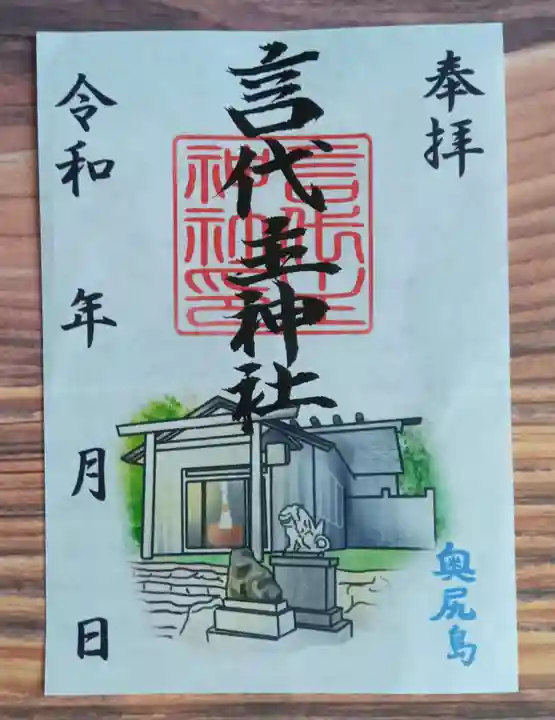 奉拝
言代主神社
言代主神社印
奥尻島
令和 年 月 日